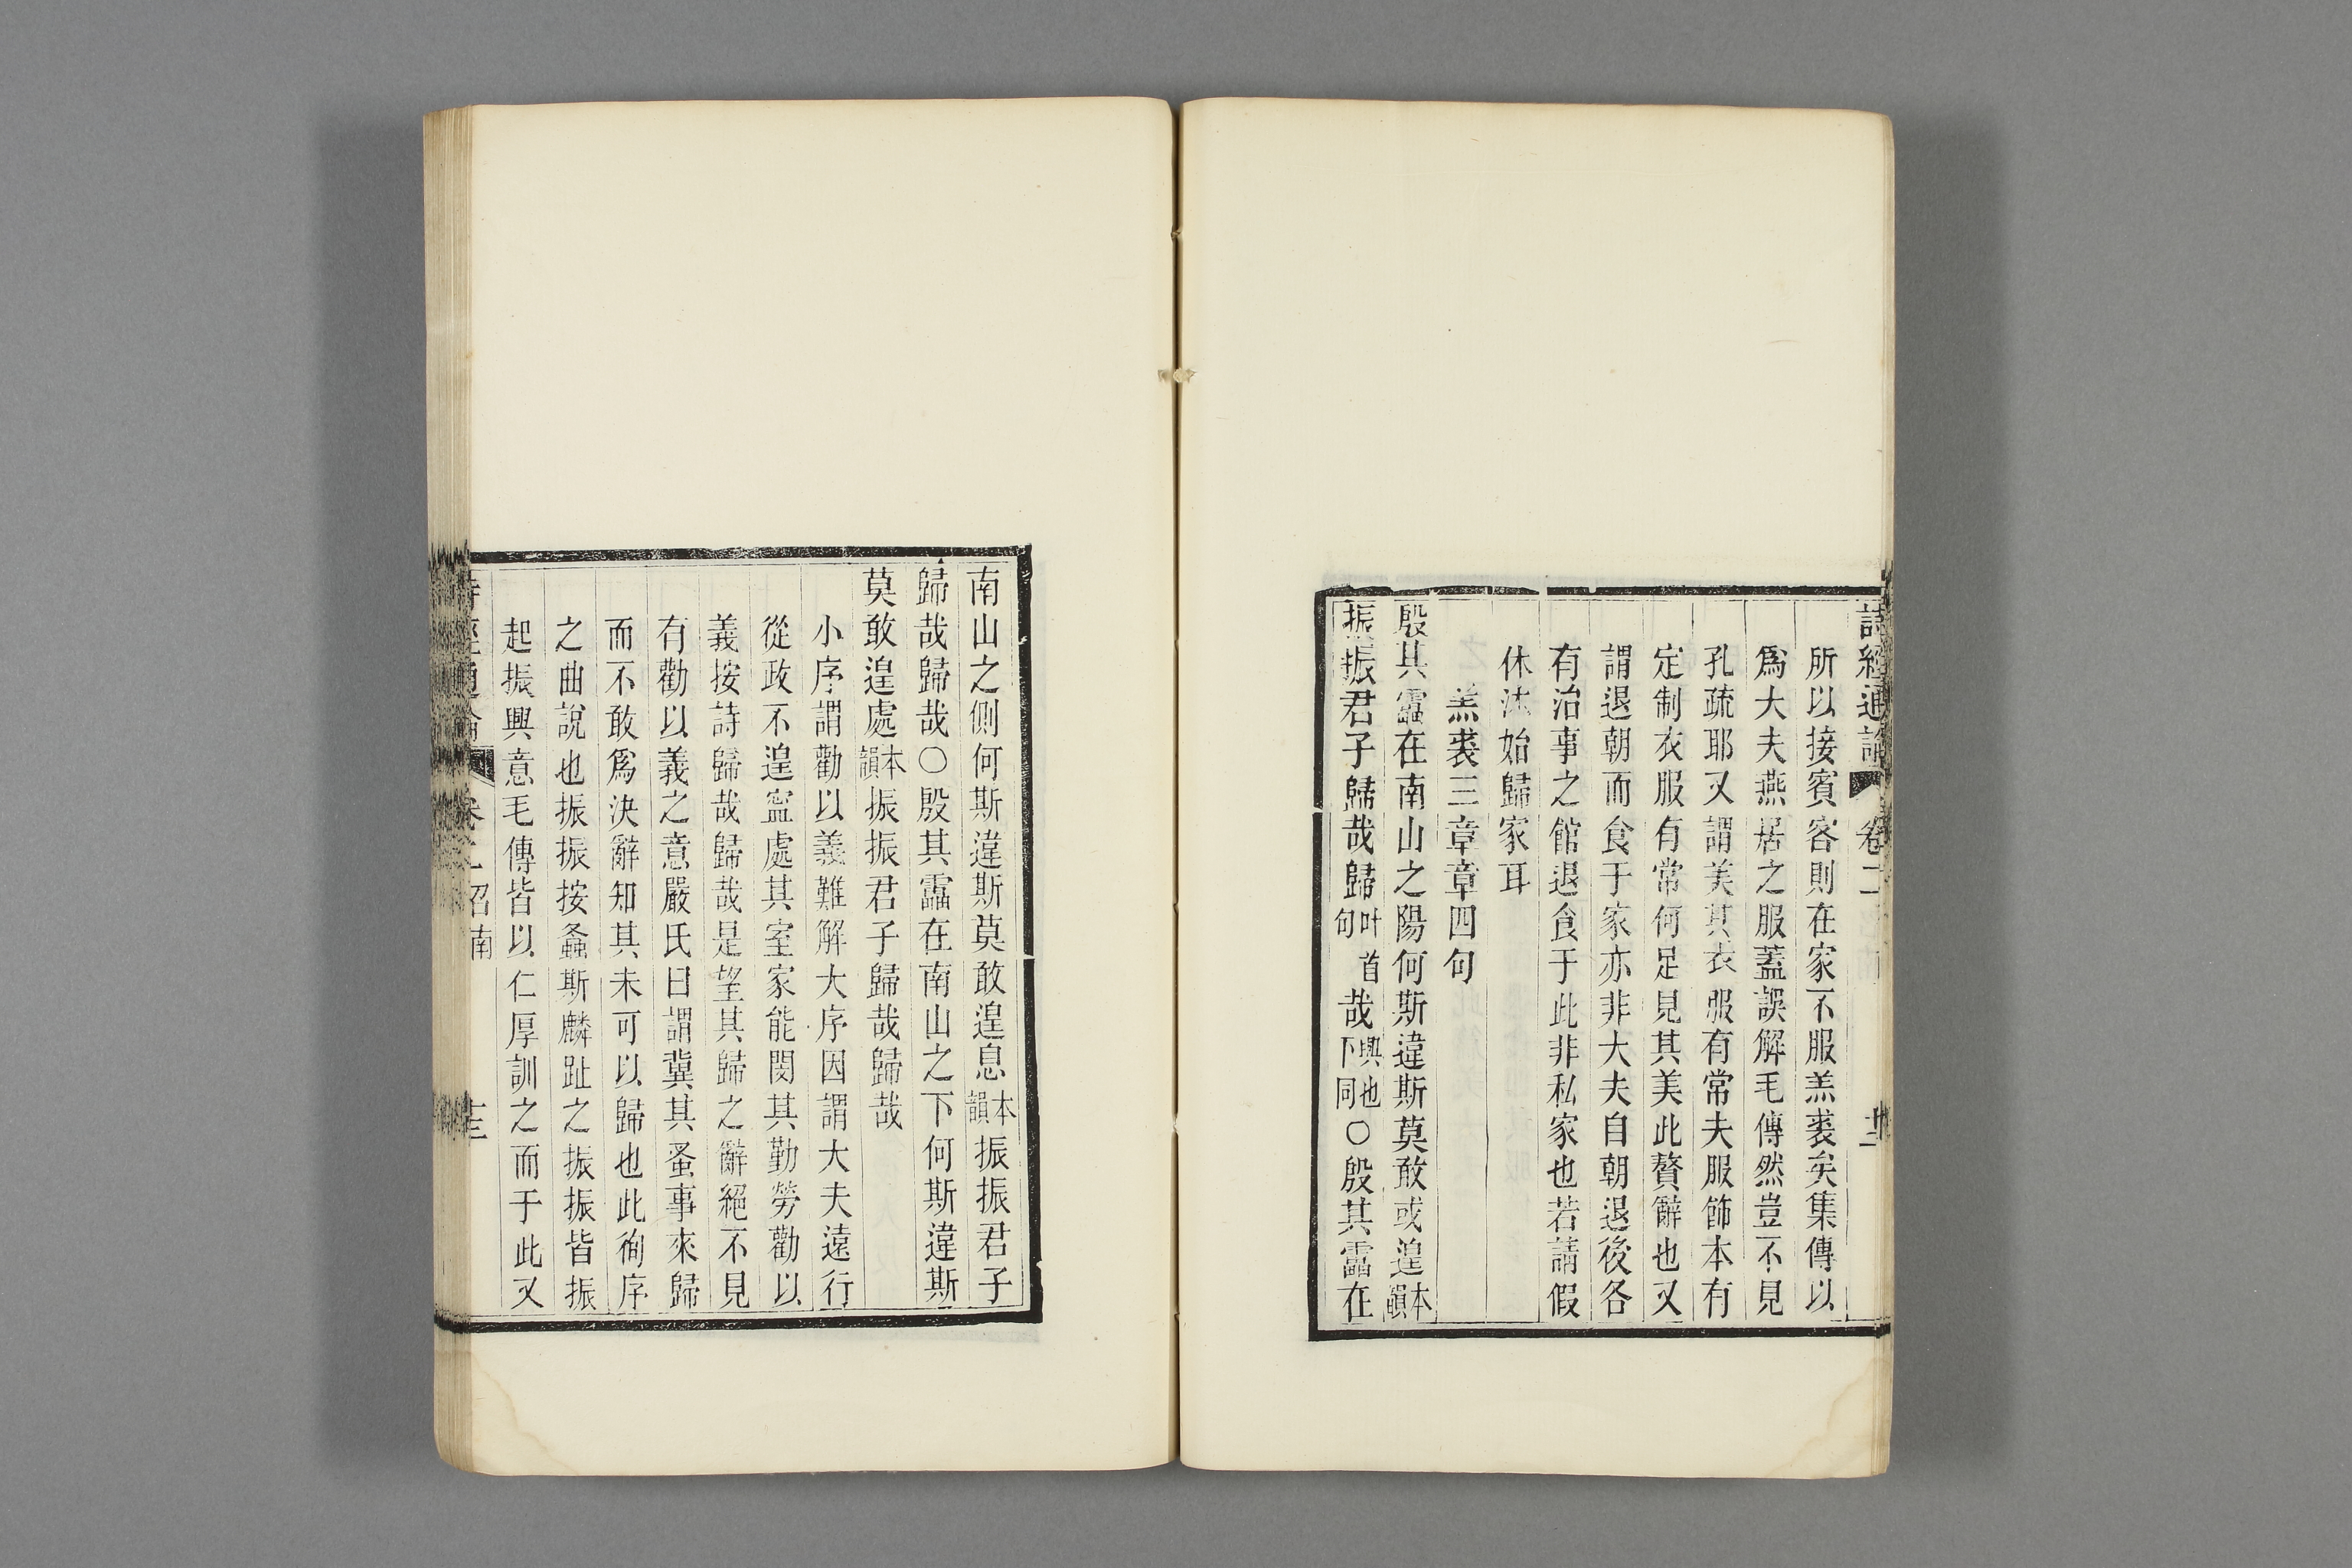 詩經通論 卷二 十二
所以接賓客則在家不服羔裘矣集傳以
爲大夫燕居之服蓋誤解毛傳然豈不見
孔疏耶又謂美其衣服有常夫服飾本有
定制衣服有常何足見其美此贅辭也又
謂退朝而食于家亦非大夫自朝退後各
有治事之館退食于此非私家也若請假
休沐始歸家耳
羔裘三章章四句
殷其靁在南山之陽何斯違斯莫敢或遑本韻
振振君子歸哉歸叶首句哉興也下同○殷其靁在
南山之側何斯違斯莫敢遑息本韻振振君子
歸哉歸哉○殷其靁在南山之下何斯違斯
莫敢遑處本韻振振君子歸哉歸哉
小序謂勸以義難解大序因謂大夫遠行
從政不遑寧處其室家能閔其勤勞勸以
義按詩歸哉歸哉是望其歸之辭絕不見
有勸以義之意嚴氏曰謂冀其蚤事來歸
而不敢爲決辭知其未可以歸也此徇序
之曲說也振振按螽斯麟趾之振振皆振
起振興意毛傳皆以仁厚訓之而于此又
詩經通論 卷二召南 十三